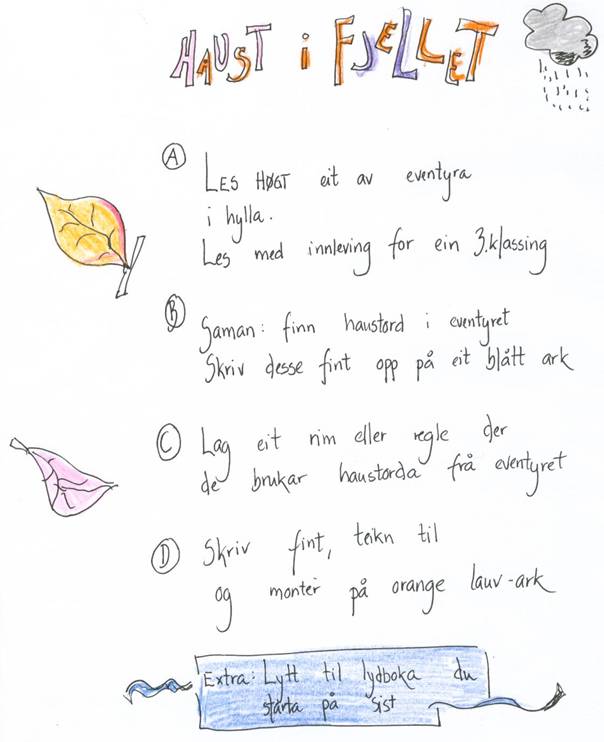 HAUST i FJELLET
A LES HØGT eit av eventyra
i hylla.
Les med innleving for ein 3.klassing
B Saman: finn haustord i eventyret
Skriv desse fint opp på eit blått ark
C Lag eit rim eller regle der
de brukar haustorda frå eventyret
D Skriv fint, teikn til
og monter på orange lauv-ark
Extra: Lytt til lydboka du
starta på sist